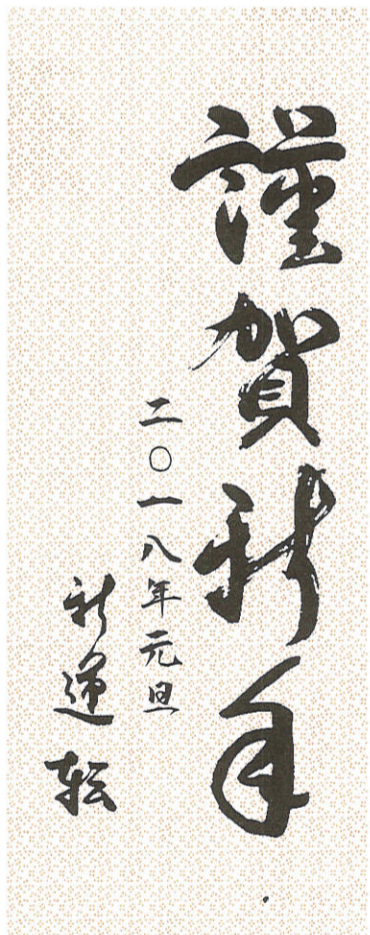 謹賀新年
二〇一八年元旦
新運転